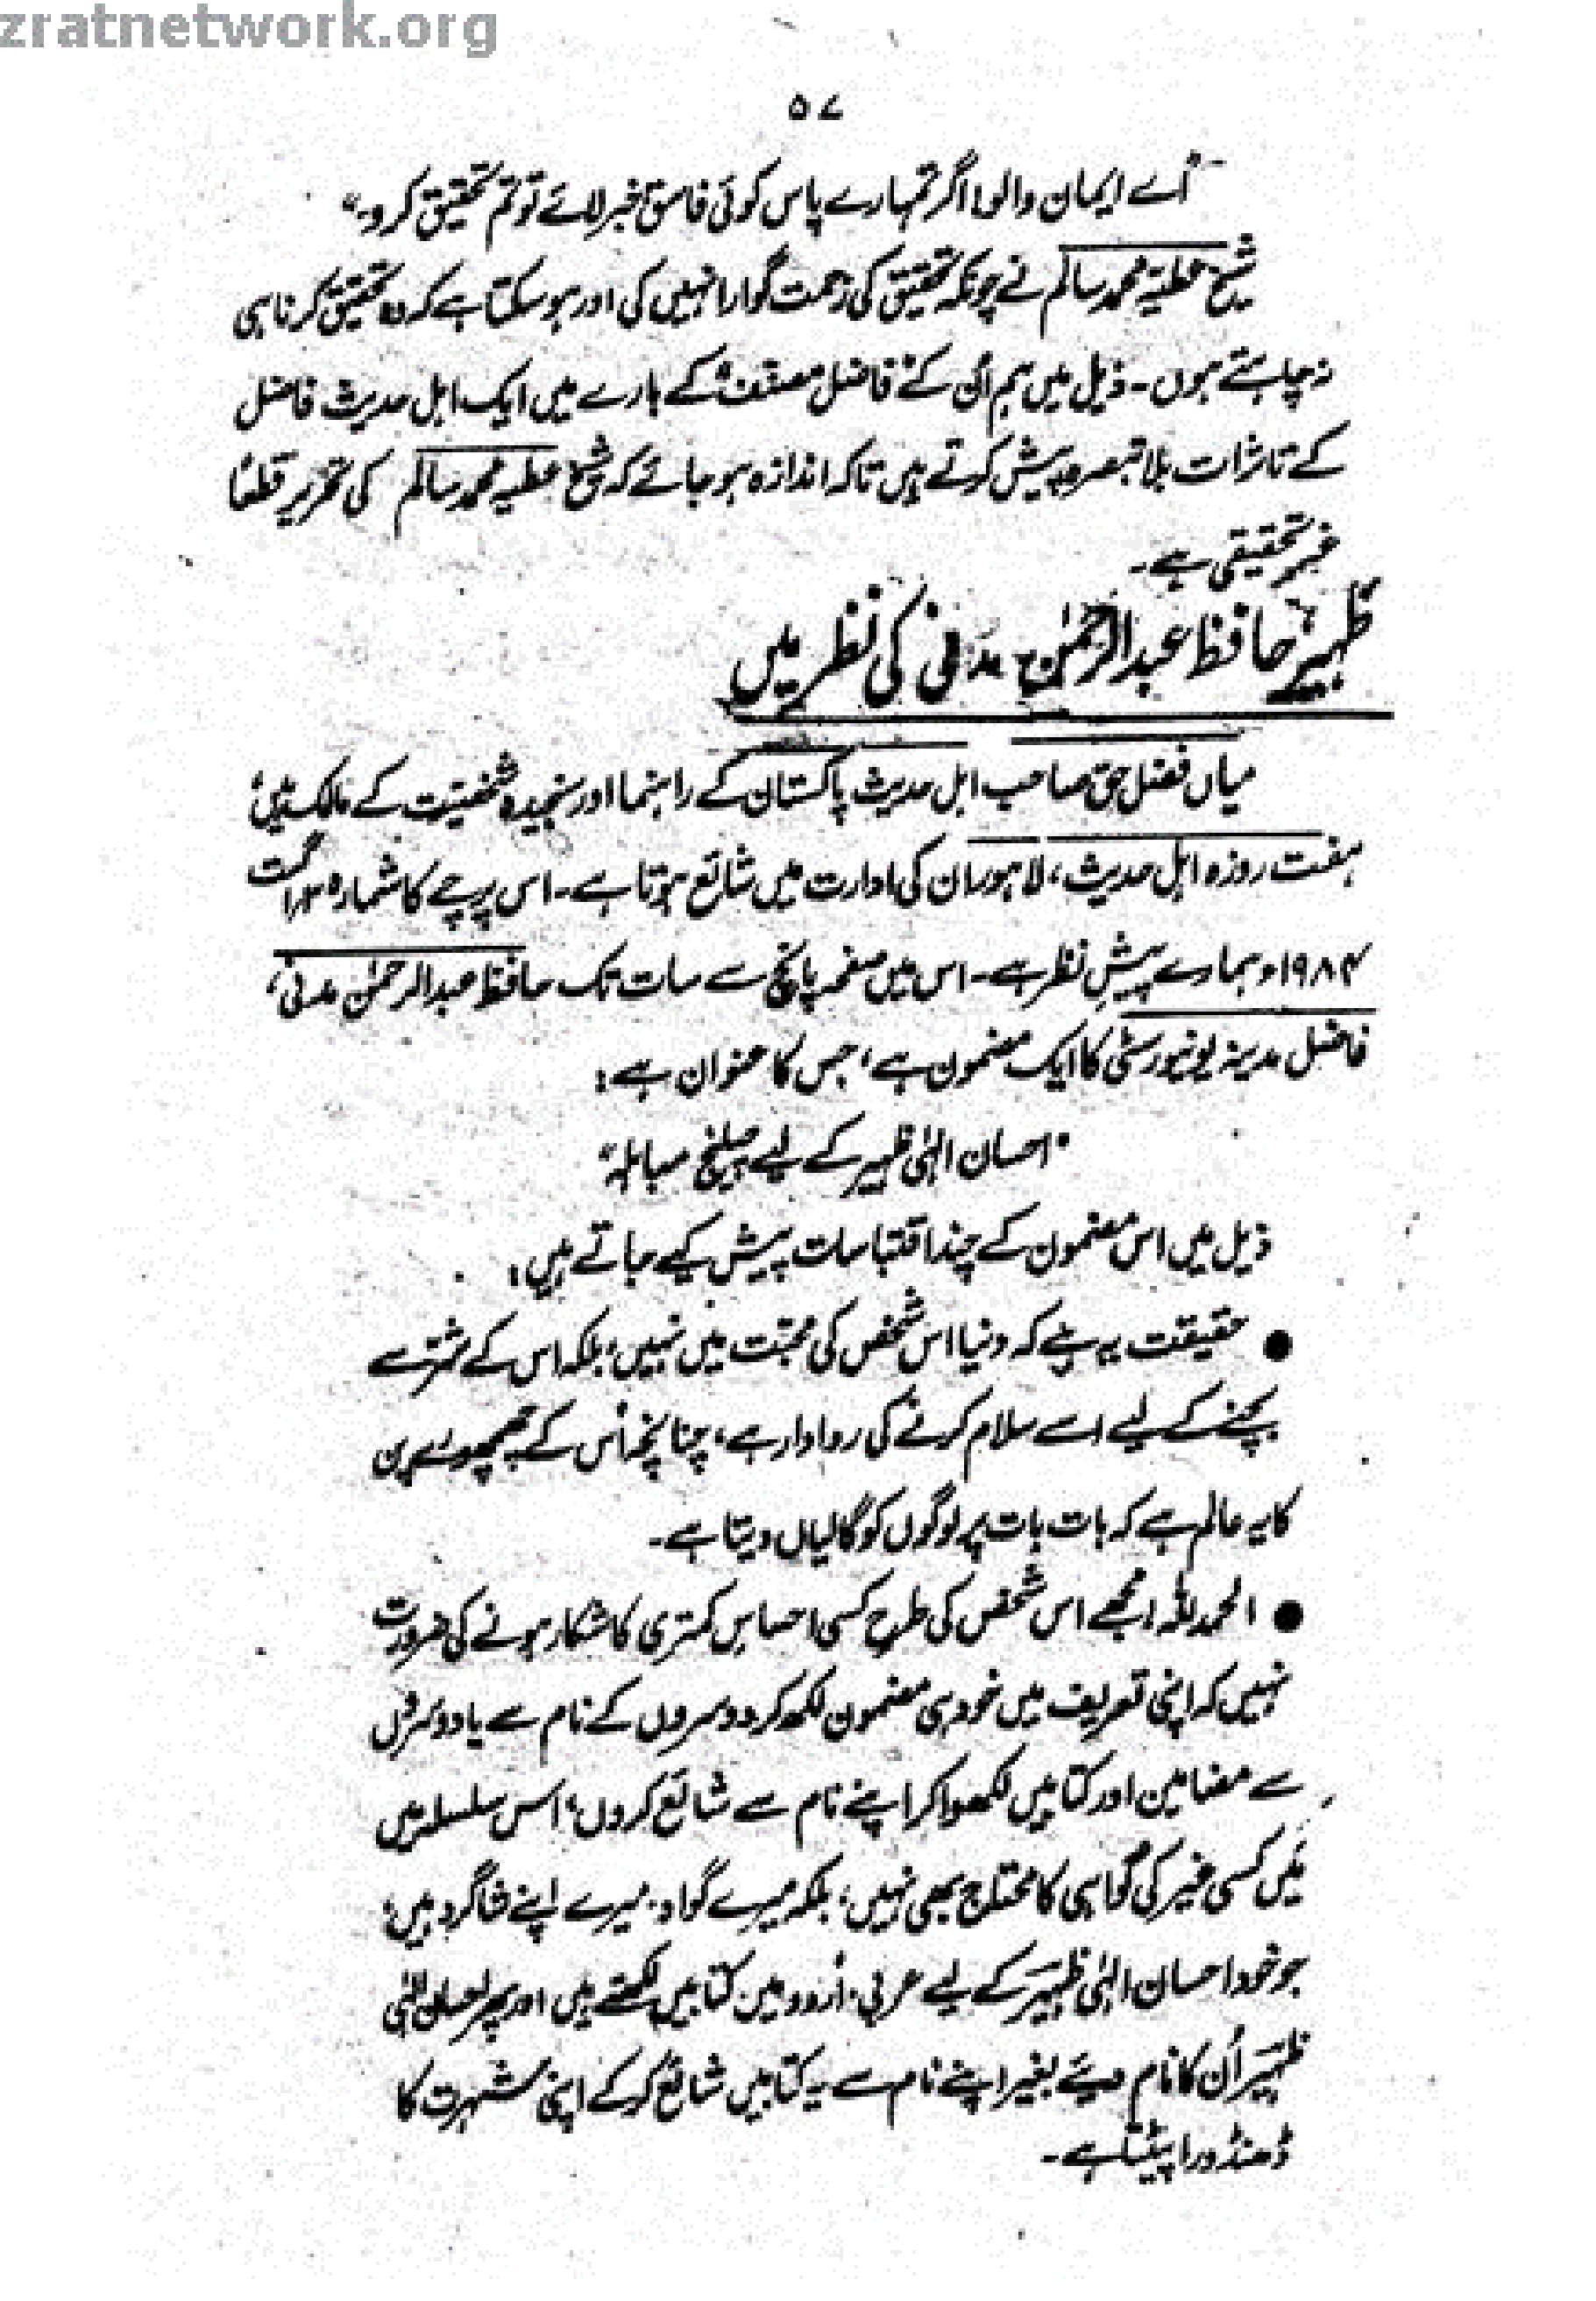 zratnetwork.org
۵۷
"اے ایمان والو! اگر تمہارے پاس کوئی فاسق خبر لائے تو تم تحقیق کرو۔"
شیخ عطیہ محمد سالم نے چونکہ تحقیق کی زحمت گوارا نہیں کی اور ہو سکتا ہے کہ وہ تحقیق کرنا ہی
نہ چاہتے ہوں۔ ذیل میں ہم اُن کے فاضل مصنف کے بارے میں ایک اہل حدیث فاضل
کے تاثرات بلا تبصرہ پیش کرتے ہیں تاکہ اندازہ ہو جائے کہ شیخ عطیہ محمد سالم کی تحریر قطعاً
غیر تحقیقی ہے۔
ظہیر، حافظ عبدالرحمٰن مدنی کی نظر میں
میاں فضل حق صاحب اہل حدیث پاکستان کے راہنما اور سنجیدہ شخصیت کے مالک ہیں،
ہفت روزہ اہل حدیث، لاہور ان کی ادارت میں شائع ہوتا ہے۔ اس پرچے کا شمارہ ۳ اگست
۱۹۸۴ء ہمارے پیشِ نظر ہے۔ اس میں صفحہ پانچ سے سات تک حافظ عبدالرحمٰن مدنی،
فاضل مدینہ یونیورسٹی کا ایک مضمون ہے، جس کا عنوان ہے:
"احسان الٰہی ظہیر کے لیے چیلنج مباہلہ"
ذیل میں اس مضمون کے چند اقتباسات پیش کیے جاتے ہیں:
● حقیقت یہ ہے کہ دنیا اس شخص کی محبت میں نہیں، بلکہ اس کے شر سے
بچنے کے لیے اسے سلام کرنے کی روادار ہے، چنانچہ اُس کے چھچھورے پن
کا یہ عالم ہے کہ بات بات پر لوگوں کو گالیاں دیتا ہے۔
● الحمد للہ! مجھے اس شخص کی طرح کسی احساسِ کمتری کا شکار ہونے کی ضرورت
نہیں کہ اپنی تعریف میں خود ہی مضمون لکھ کر دوسروں کے نام سے یا دوسروں
سے مضامین اور کتابیں لکھوا کر اپنے نام سے شائع کروں، اس سلسلہ میں
میں کسی غیر کی گواہی کا محتاج بھی نہیں، بلکہ میرے گواہ میرے اپنے شاگرد ہیں،
جو خود احسان الٰہی ظہیر کے لیے عربی، اُردو میں کتابیں لکھتے ہیں اور پھر احسان الٰہی
ظہیر اُن کا نام دیئے بغیر اپنے نام سے یہ کتابیں شائع کر کے اپنی شہرت کا
ڈھنڈورا پیٹتا ہے۔